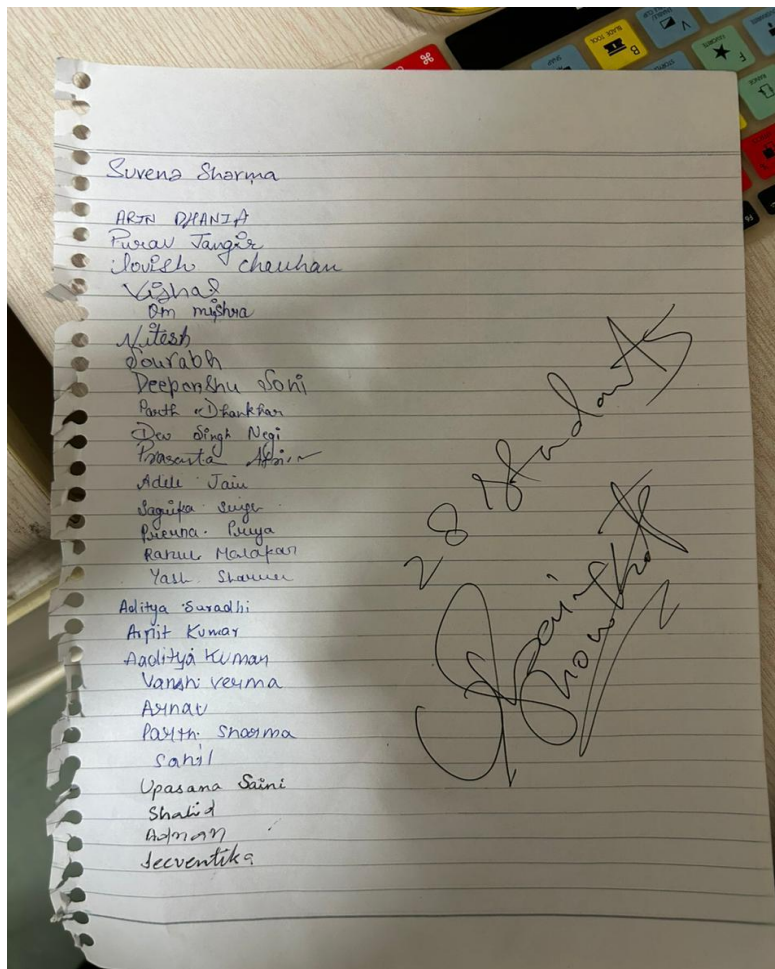 Suvena Sharma
ARJN DHANIA
Purav Jangir
Lovish chauhan
Vishal
Om mishra
Nitesh
Sourabh
Deepanshu Soni
Parth Dhankhar
Dev Singh Negi
Prasanta
Adele Jain
Sagnika Singh
Prerna. Priya
Rahul Malakar
Yash Sharma
Aditya Suradhi
Arpit Kumar
Aaditya Kuman
Vansh verma
Arnav
Parth. Sharma
Sahil
Upasana Saini
Shalid
Adnan
Jeeventika
28 Students